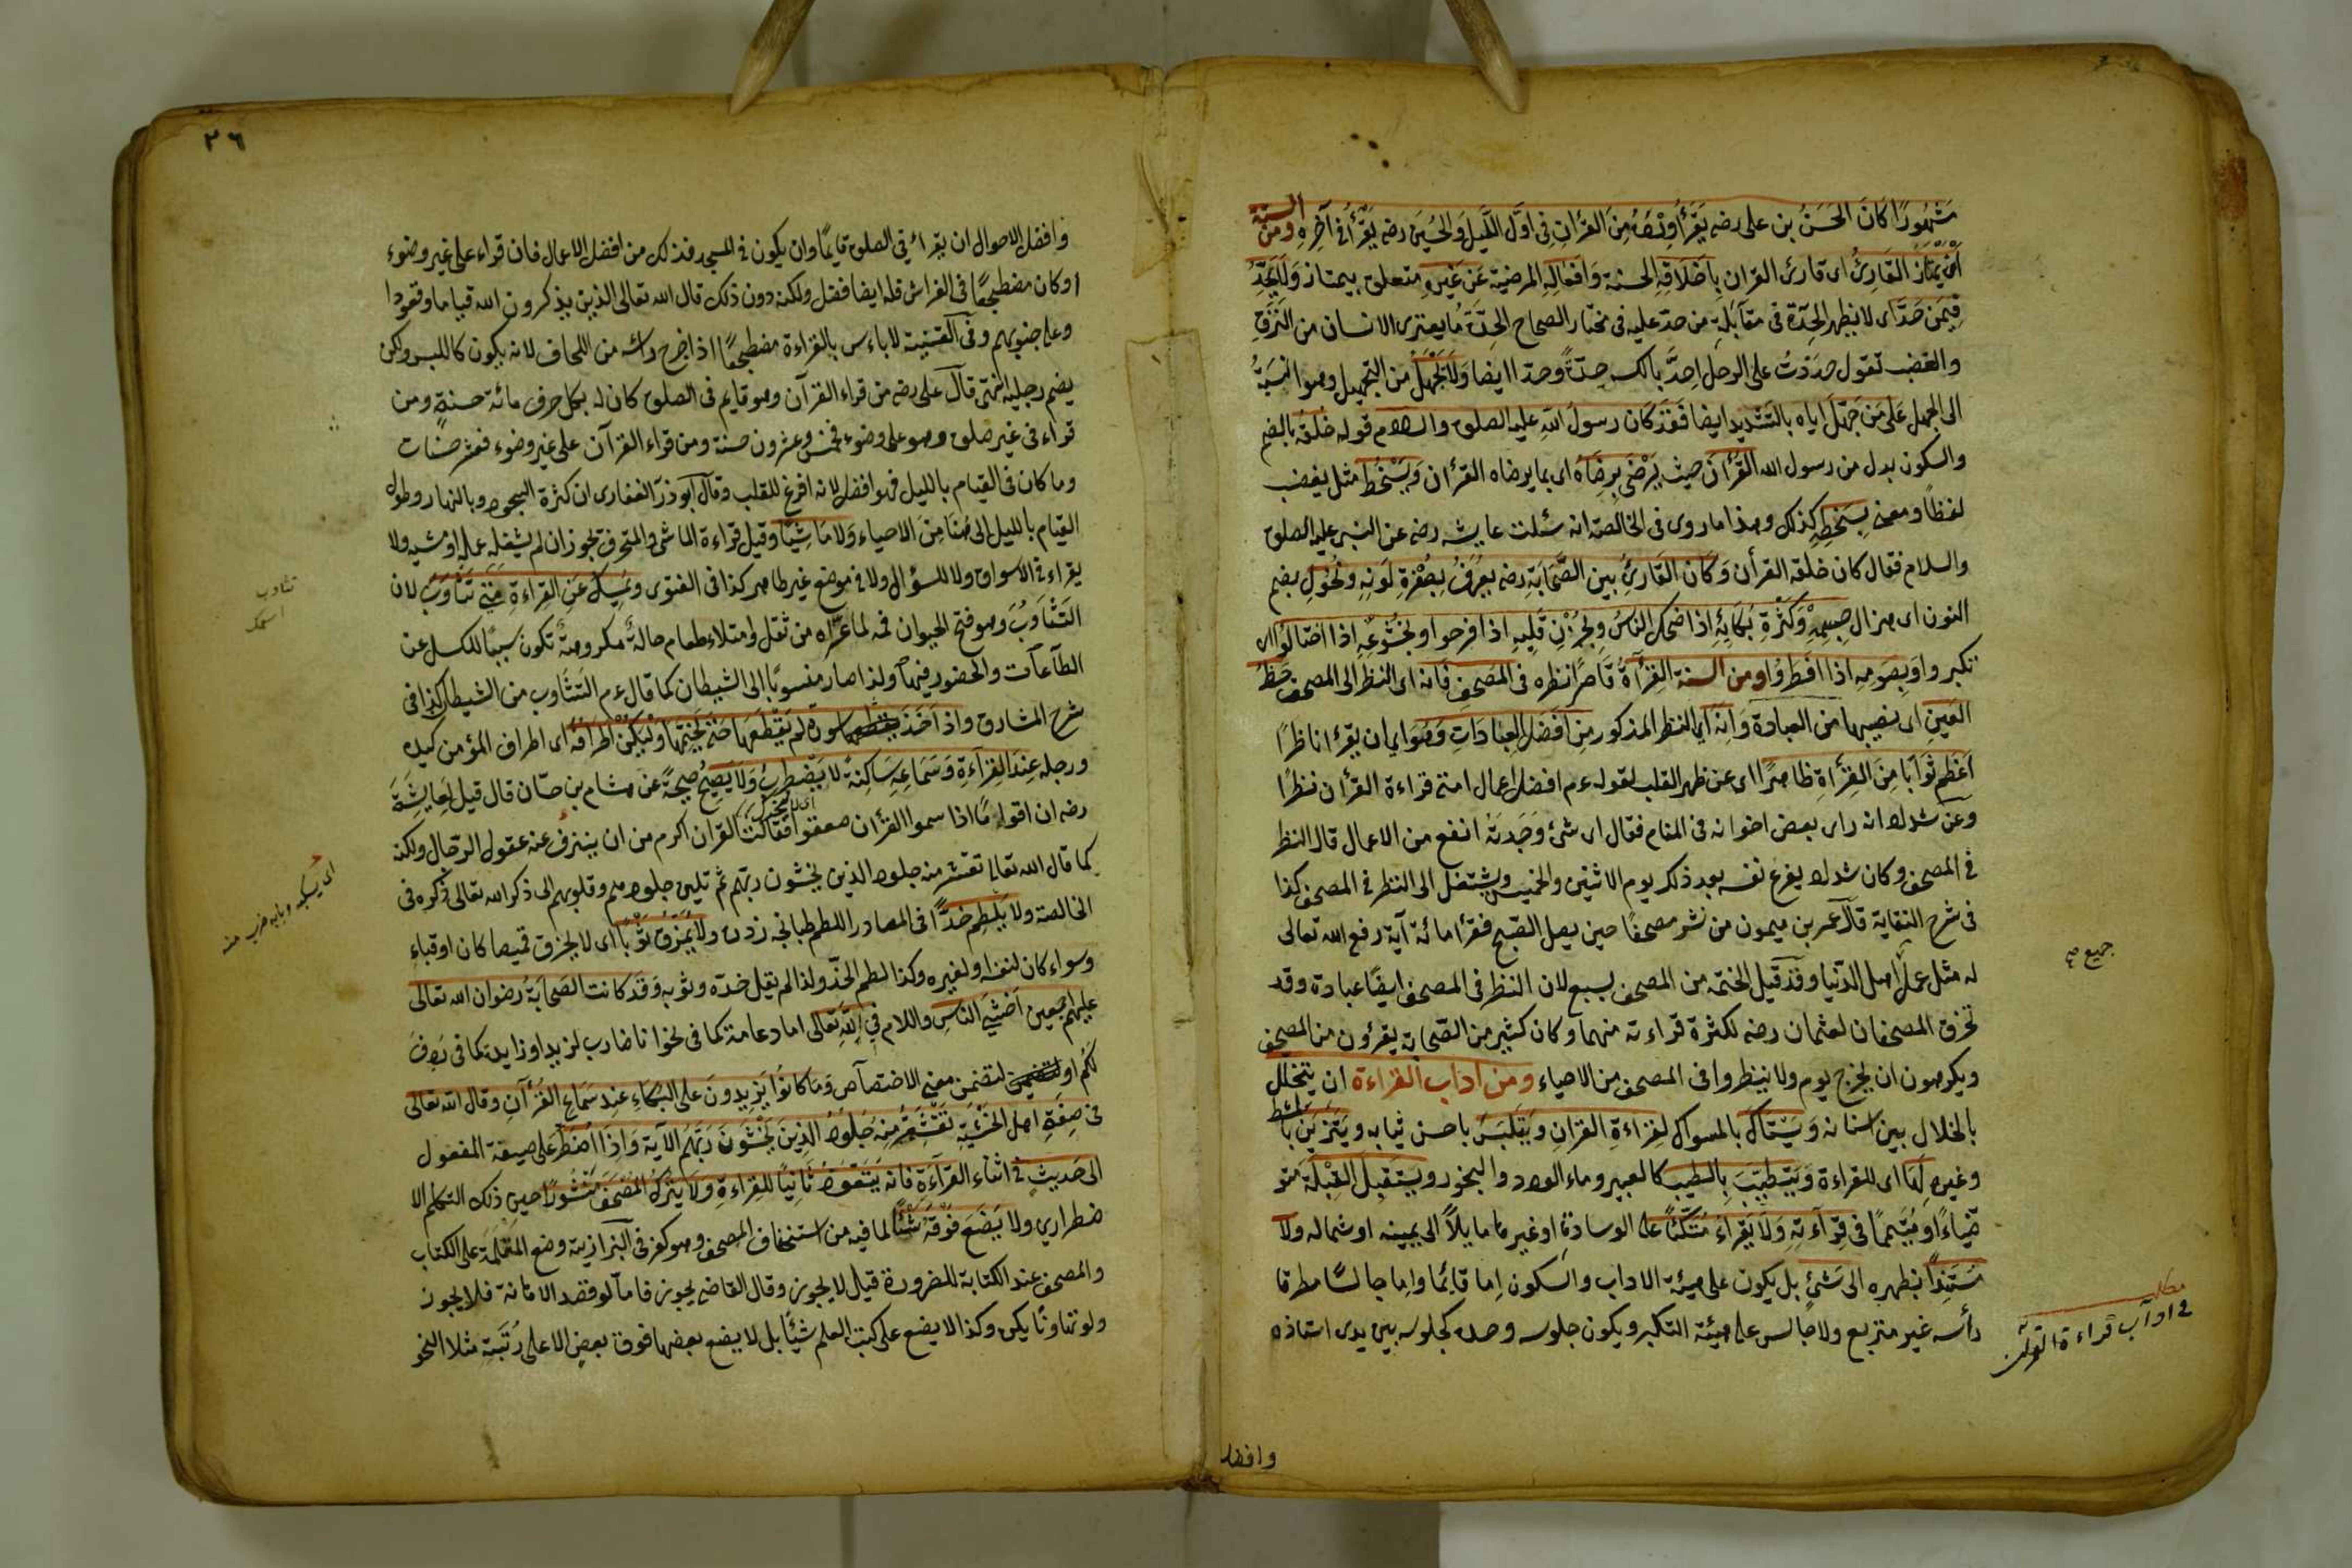 مَشْهُورًا كَانَ الحَسَنُ بن على رضه يَقْرَأُ وِرْدَهُ مِنَ القرْانِ فى اوَّلِ اللَّيلِ وَالحُسَين رضه يَقْرَأُ فى آخِرِهِ ومن السنة
اَنْ يَمْتَازَ القَارِئُ اى قارئ القران بِاَخْلَاقِهِ الحسنة وَاَفعالِهِ المرضية عَن غَيْرِهِ متعلق بيمتاز وَلَا يَحِدَّ
فِيمَن حَدَّ اى لا يظهر الحِدّة فى مقابلة من حدّ عليه فى مختار الصحاح الحِدَّةَ ما يعترى الانسان من النَّزَقِ
والغضب تقول حدَدْتُ على الرجل احِدَّ بالكسر حِدّةً وحدّا ايضا وَلَا يَجْهَلْ من التجهيل وهو النسبةُ
الى الجهل عَلَى مَن جَهِّلَ اياه بالتشديد ايضا فَقَدْ كَانَ رسولُ اللّهِ عليه الصلوة والسلام قوله خلقُهُ بالضم
والسكون بدل من رسول الله القُرْأنَ حيث يَرْضَى بِرِضَاهُ اى بما يرضاه القرْأن وَيَسْخَطُ مثل يغضب
لفظًا ومعنى بِسَخَطِهِ كذلك وهذا ما روى فى الخالصة انه سئلت عايشه رضه عن النبى عليه الصلوة
والسلام فقال كان خلقه القرأن وَكَانَ القَارِئُ بين الصَّحَابَةِ رضه يعرَفُ بِصُفْرَةِ لَونِهِ ونُحُولِ بضم
النون اى هزال جِسمِهْ وَكَثْرَةِ بُكَائِهِ اذا ضحك الناسُ وبِحُزْنِ قَلبِهِ اذا فرحوا وبخُشُوعِهِ اذا اختالُوا اى
تكبروا وبِصَومِهِ اذا افطرُوا ومن السنة القِرْأةُ قاصرًا نظره فى المُصحَفِ فَانه اى النظر الى المصحف حَظُّ
العَينِ اى نصيبها من العبادة وَانه اى النظر المذكور مِن اَفْضَلِ العِبَادَاتِ وَهُوَ اى ان يقرْأ ناظرًا
اَعْظَم ثَوَابًا مِنَ القِرْأةِ ظاهرًا اى عن ظهر القلب لقوله ءم افضل اعمال امتى قراءة القرْأن نظرًا
وعن شداد انه راى بعض اخوانه فى المنام فقال اى شئ وَجَدتَهُ انفع من الاعمال قال النظر
فى المصحف وكان شداد يفرغ نفسه بعد ذلك يوم الاثنين والخميس ويشتغل الى النظر فى المصحف كذا
فى شرح النقاية قال عمر بن ميمون من نشر مصحفًا حين يصلى الصبح فقرأ مائة آية رفع الله تعالى
له مثل عمل اهل الدّنيا وقد قيل الختمة من المصحف بسبع لان النظر فى المصحف ايضًا عبادة وقد
تخرق المصحفان لعثمان رضه لكثرة قراءته منهما وكان كثير من الصّحابة يقرؤن من المصحف
ويكرهون ان يخرج يوم ولا ينظروا فى المصحف من الاحياء ومن اداب القراءة ان يتخلّل
بالخلال بين اسنانه وَيَسْتَاكَ بالمسواك لقراءةِ القرانِ ويَتَلَبَّسَ باحسن ثيابه ويَتَزَيَّنَ بالمشط
وغيره لَهَا اى للقراءة وَيَتَطَيَّبَ بِالطيب كالعبير وماء الورد والبخور ويستقبل القِبْلَةَ متو
ضّيًاءً او مُتَيَمِّمًا فى قِرَآءَتِهِ وَلَا يَقْرَاءَ مُتَّكئًا على الوسادة او غيرها مايلاً الى يمينه او شماله ولا
مُسْتَنِدًا بظهره الى شَئٍ بل يكون على هيئة الاداب والسكون اما قائما واما جالسًا مطرقا
رأسه غير متربع ولا جالس على هيئة التكبر ويكون جلوسه وحده كجلوسه بين يدى استاذه
جميع صح
مطلب
فى اداب قراءة القران
وافضل
٣٦
وافضل الاحوال ان يقراء فى الصلوة قايمًا وان يكون فى المسجد فذلك من افضل الاعمال فان قراء على غير وضوء
او كان مضطجعًا فى الفراش فله ايضا فضل ولكنه دون ذلك قال الله تعالى الذين يذكرون الله قياما وقعودا
وعلى جنوبهم وفى القنية لا باءس بالقراءة مضطجعًا اذا اخرج راسه من اللحاف لانه يكون كاللبس ولكن
يضم رجليه انتهى قال على رضه من قراء القرآن وهو قايم فى الصلوة كان له بكل حرف مائة حسنة ومن
قراء فى غير صلوة وهو على وضوء فخمس وعشرون حسنة ومن قراء القرآن على غير وضوء فعشر حسنات
وما كان فى القيام بالليل فهو افضل لانه افرغ للقلب وقال ابو ذر الغفارى ان كثرة السجود بالنهار وطول
القيام بالليل الى هُنَا مِنَ الاحياء وَلَا مَاشِيًا وقيل قراءة الماشى والمتحرف تجوز ان لم يشغله عمله او مشيه ولا
يقراء فى الاسواق ولا للسؤال ولا فى موضع غير طاهر كذا فى الفتوى ويُمسِكُ عَنِ القِراءةِ متى تَثَاوَبَ لان
التثاوب وهو فتح الحيوان فمه لما عَراه من ثقل وامتلاء طعام حالةٌ مكروهةٌ تكون سببًا للكسل عن
الطاعات والحضور فيها ولذا صار منسوبًا الى الشيطان كما قال ءم التثاوب من الشيطان كذا فى
شرح المشارق واذا اَخَذَ سورة لم يَقْطَعهَا حَتى يَختِمَهَا وليَكُنْ اَطْرَافُهُ اى اطراف المؤمن كيده
ورجله عِندَ القِرَآءَةِ وَسَمَاعِهِ سَاكِنةً لا يَضْطَرِبُ وَلَا يَصِيحُ صيحةً عن هشام بن حسّان قال قيل لِعَايشَةَ
اى لا يتحرك
رضه ان اقواما اذا سمعوا القرْأن صعقوا فَقَالَت القران اكرم من ان ينزف عنه عقول الرجال ولكنه
كما قال الله تعالى تقشعر منه جلود الذين يخشون ربّهم ثم تلين جلودهم وقلوبهم الى ذكر الله تعالى ذكره فى
الخالصة ولا يَلطِم خَدًّا فى المصادر اللطم طبانجه زدن ولا يُمَزِّق ثَوْبًا اى لا يخرق قميصا كان او قباء
وسواء كان لنفسه او لغيره وكذا لطم الخدّ ولذا لم يقل خدّه وثوبه وَقَد كانت الصَحَابَةُ رضوان الله تعالى
عليهم اجمعين اَخْشَى النَاسِ واللام فى لِلّهِ تعالى اما دعامة كما فى نحو انا ضارب لزيد او زايدة كما فى رَدِفَ
لَكُم او لتضمن معنى الاختصاص وَمَا كانُوا يَزِيدُونَ على البُكاءِ عند سَمَاعِ القُرْآنِ وقال الله تعالى
فى صِفَةِ اهل الخَشْيَةِ تَقْشَعِرُّ مِنْهُ جُلُودُ الذِينَ يَخْشَونَ رَبَّهُم الاية وَاِذَا اُضْطُرَّ على صيغة المفعول
الى حَديثٍ فى اثناء القرَآءَةِ فَانه يَتَعَوَّذُ ثَانِيًا لِلقِراءةِ ولا يَترُكُ المُصْحَفَ مَنشُورًا حين ذلك التكلم الا
ضطرارى ولا يَضَعَ فوقَهُ شَيْئًا لما فيه من استخفاف المصحف وهو كفر فى البزازية وضع المَقْلَمَة على الكتاب
والمصحف عند الكتابة للضرورة قيل لا يجوز وقال القاضى يجوز فاما لو قصد الاهانة فلا يجوز
ولو تهاونًا يكن وكذا لا يضع على كتب العلم شيئًا بل لا يضع بعضها فوق بعض الا على رُتْبَة مثلا النحو
تثاوب
اسنمك